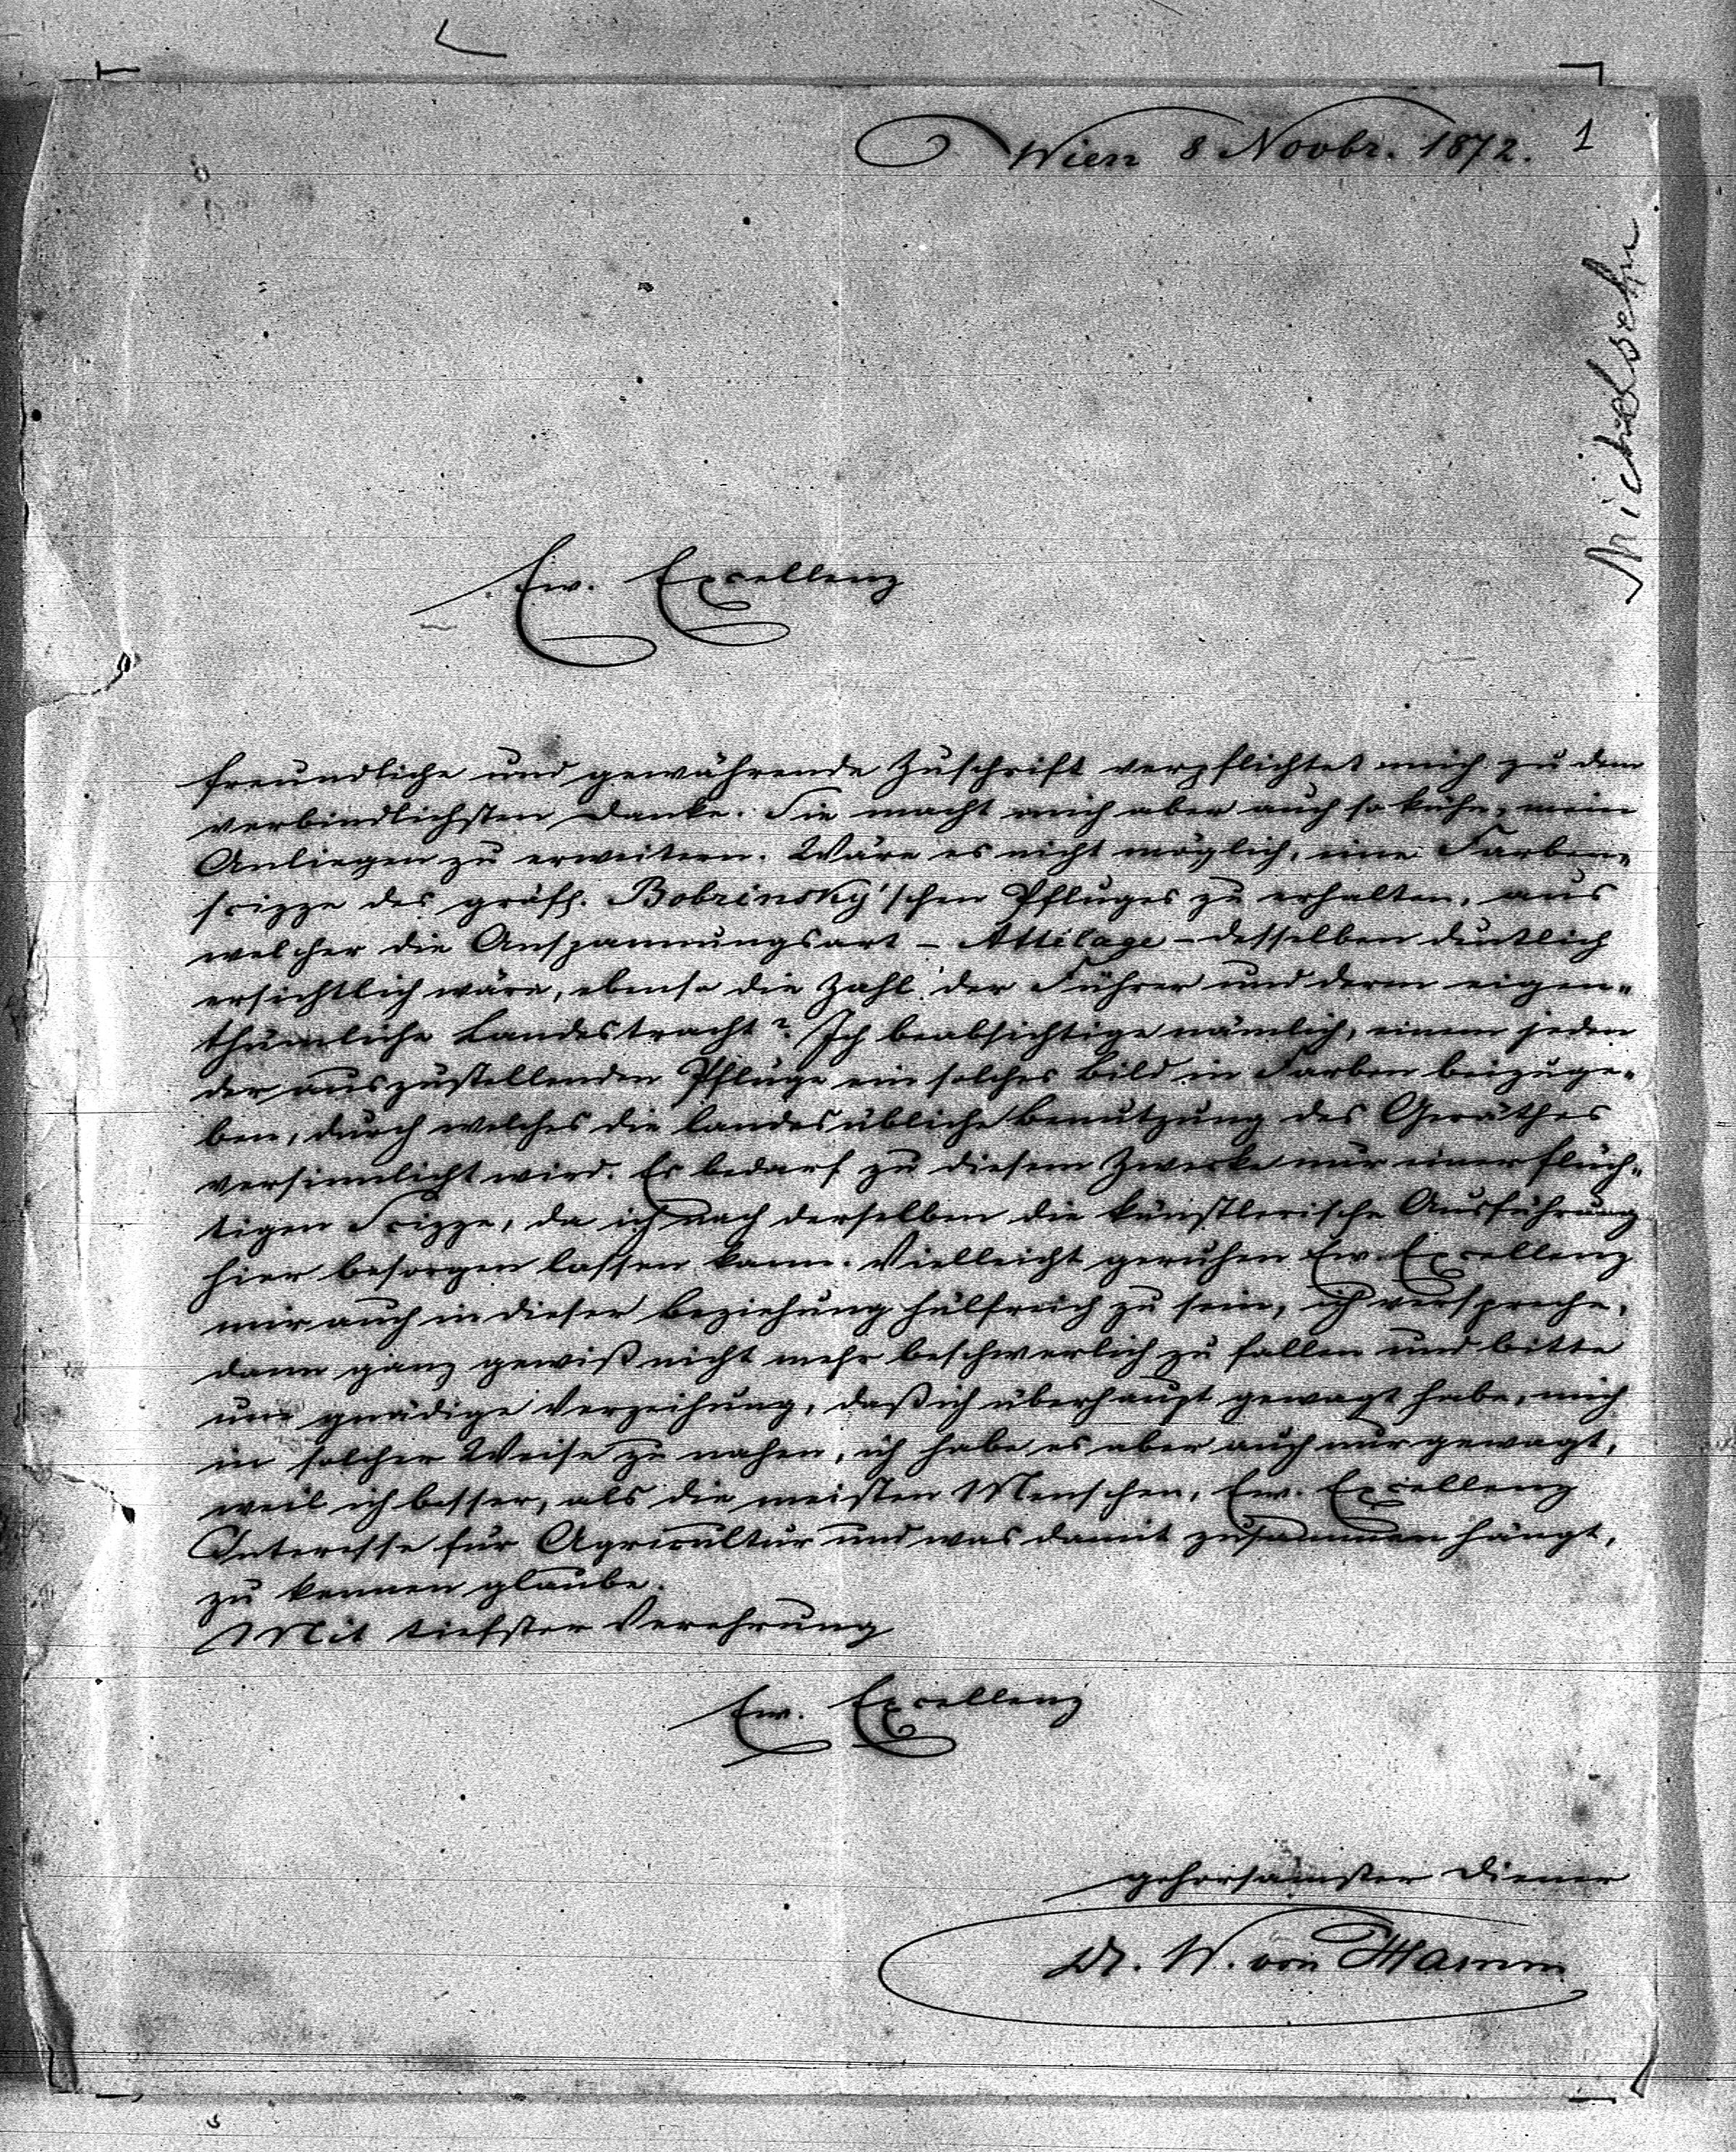 Wien 8 Novbr. 1872.
1
Michelsohn
Ew. Excellenz
freundliche und gewährende Zuschrift verpflichtet mich zu dem
verbindlichsten Danke. Sie macht mich aber auch so kühn, mein
Anliegen zu erweitern. Wäre es nicht möglich, eine Farben-
scizze des gräfl. Bobrinsky'schen Pfluges zu erhalten, aus
welcher die Anspannungsart – Attelage – desselben deutlich
ersichtlich wäre, ebenso die Zahl der Führer und deren eigen-
thümliche Landestracht? Ich beabsichtige nämlich, einem jeden
der auszustellenden Pflüge ein solches Bild in Farben beizuge-
ben, durch welches die landesübliche Benutzung des Geräthes
versinnlicht wird. Es bedarf zu diesem Zwecke nur einer flüch-
tigen Scizze, da ich nach derselben die künstlerische Ausführung
hier besorgen lassen kann. Vielleicht geruhen Ew. Excellenz
mir auch in dieser Beziehung hülfreich zu sein, ich verspreche,
dann ganz gewiß nicht mehr beschwerlich zu fallen und bitte
um gnädige Verzeihung, daß ich überhaupt gewagt habe, mich
in solcher Weise zu nahen, ich habe es aber auch nur gewagt,
weil ich besser, als die meisten Menschen, Ew. Excellenz
Interesse für Agricultur und was damit zusammen hängt,
zu kennen glaube.
Mit tiefster Verehrung
Ew. Excellenz
gehorsamster Diener
Dr. W. von Hamm